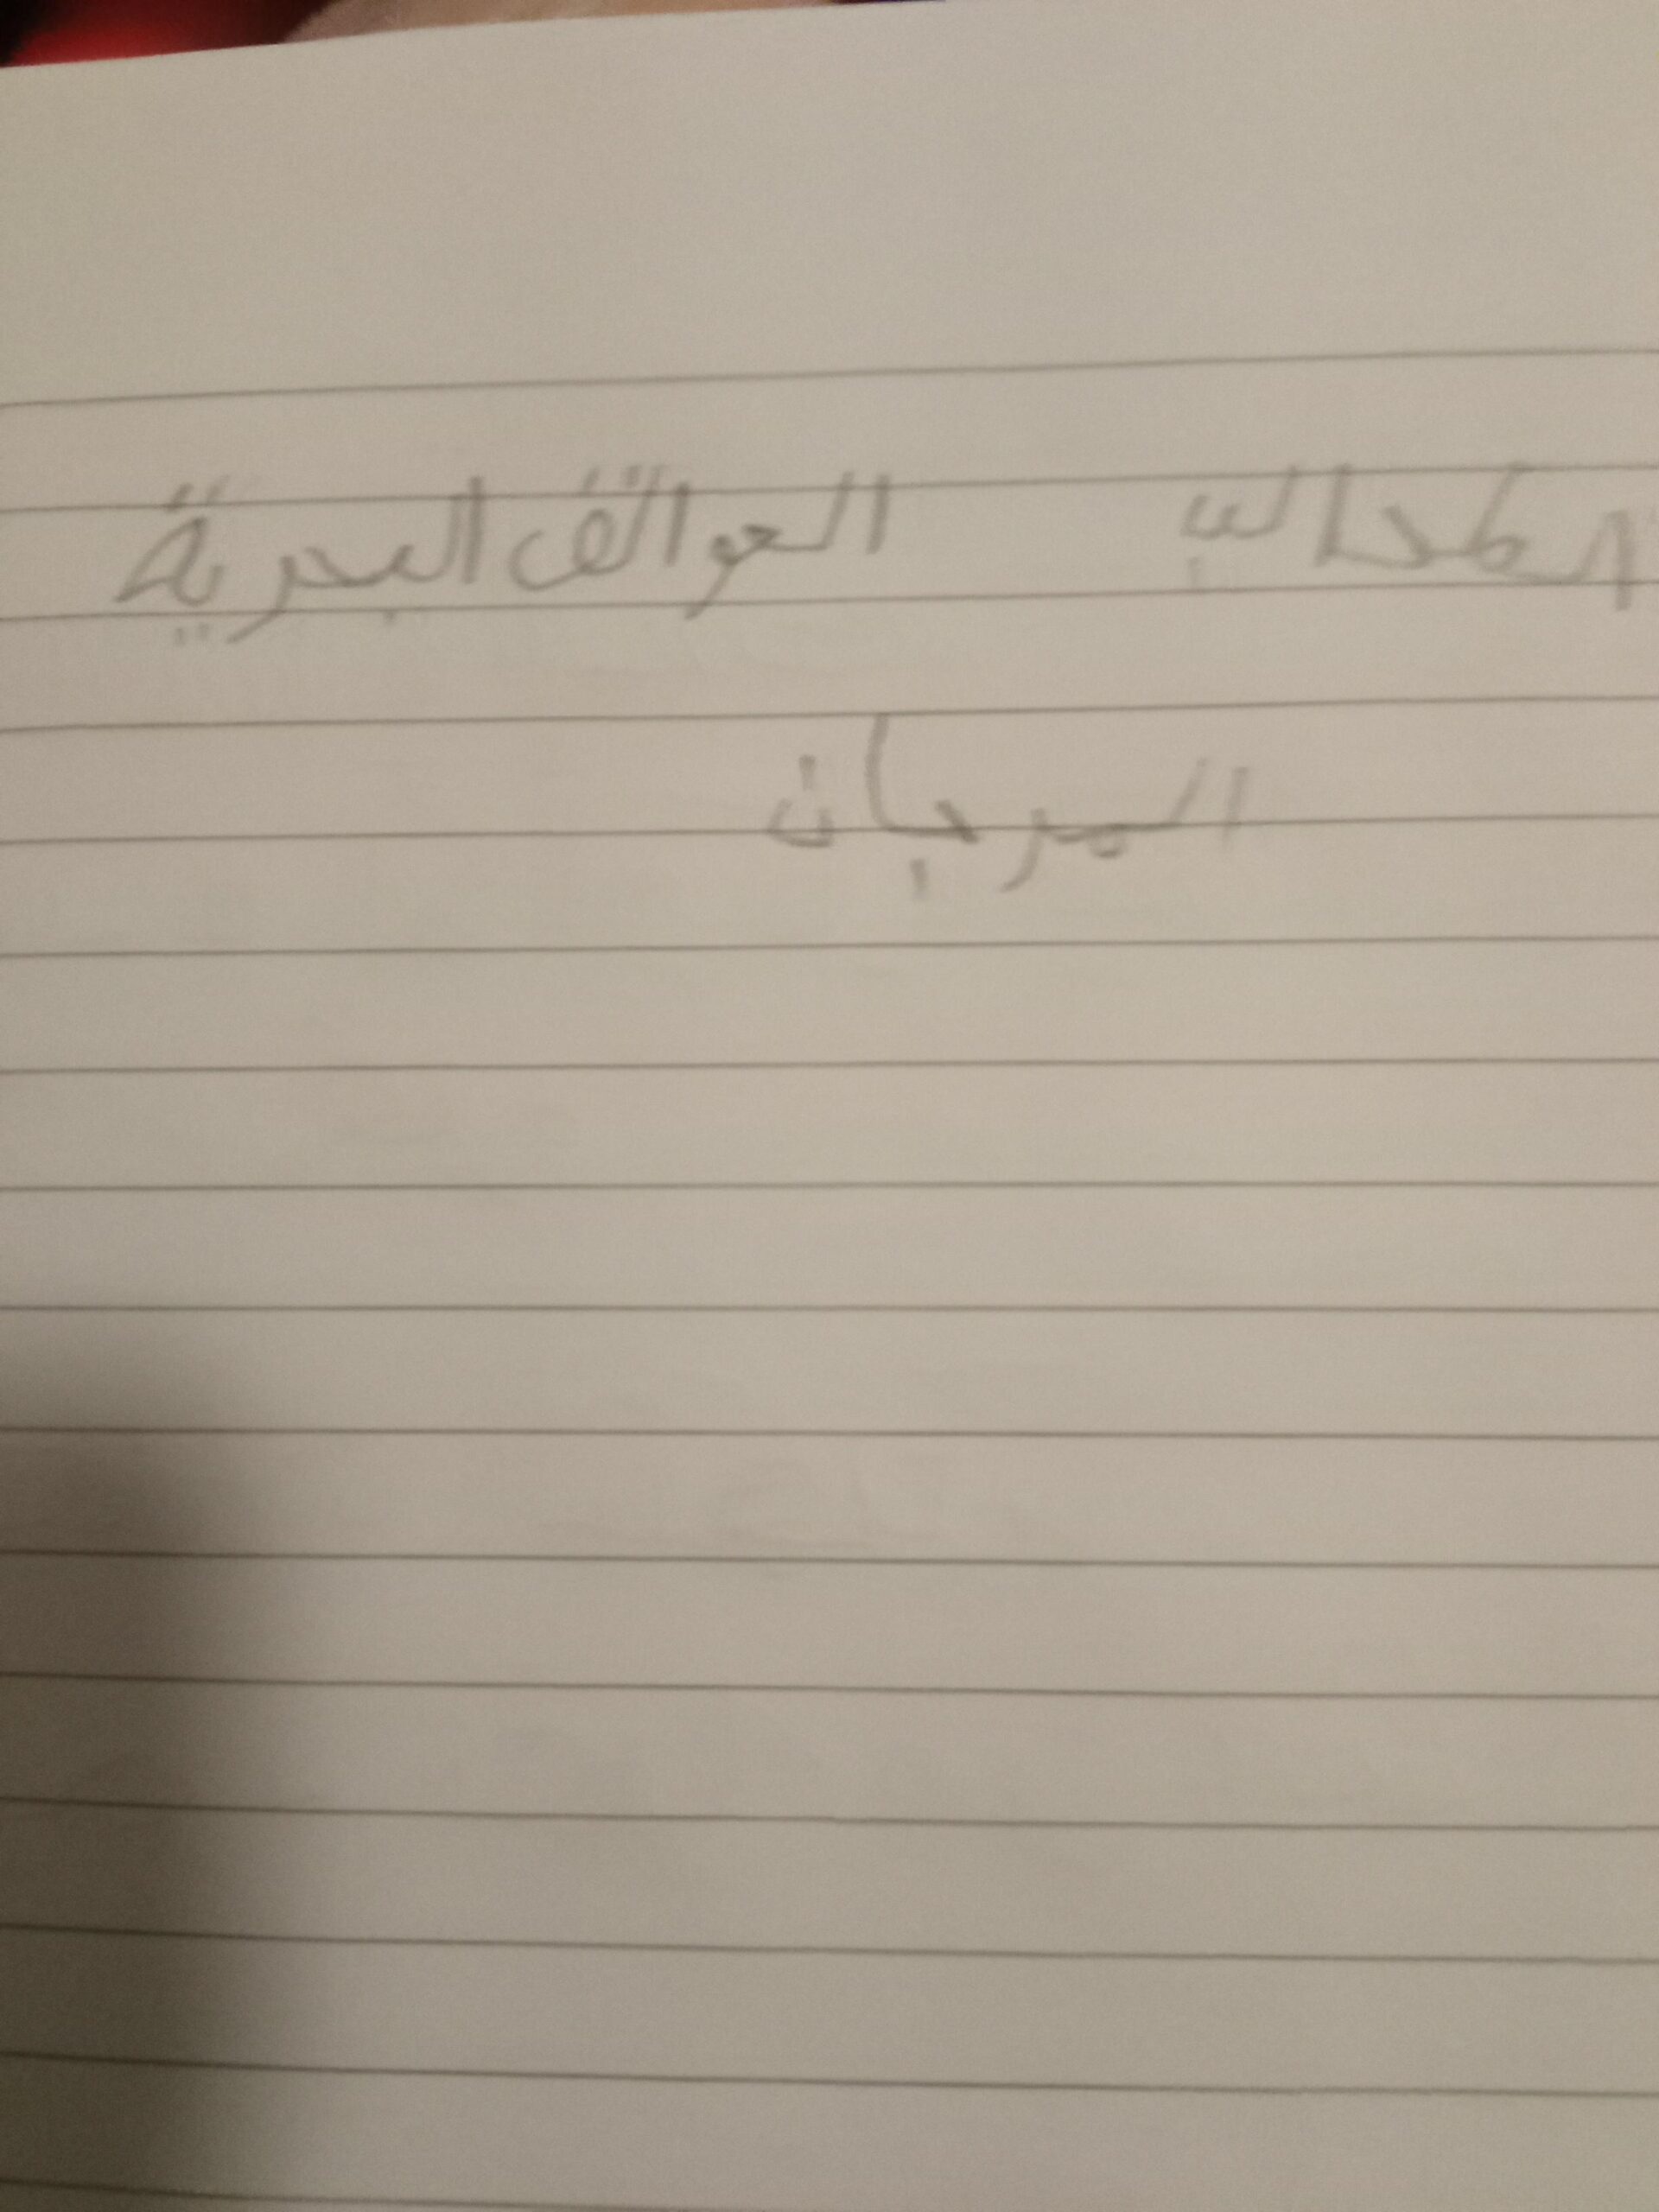 الطحالب العوالق البحرية
المرجان